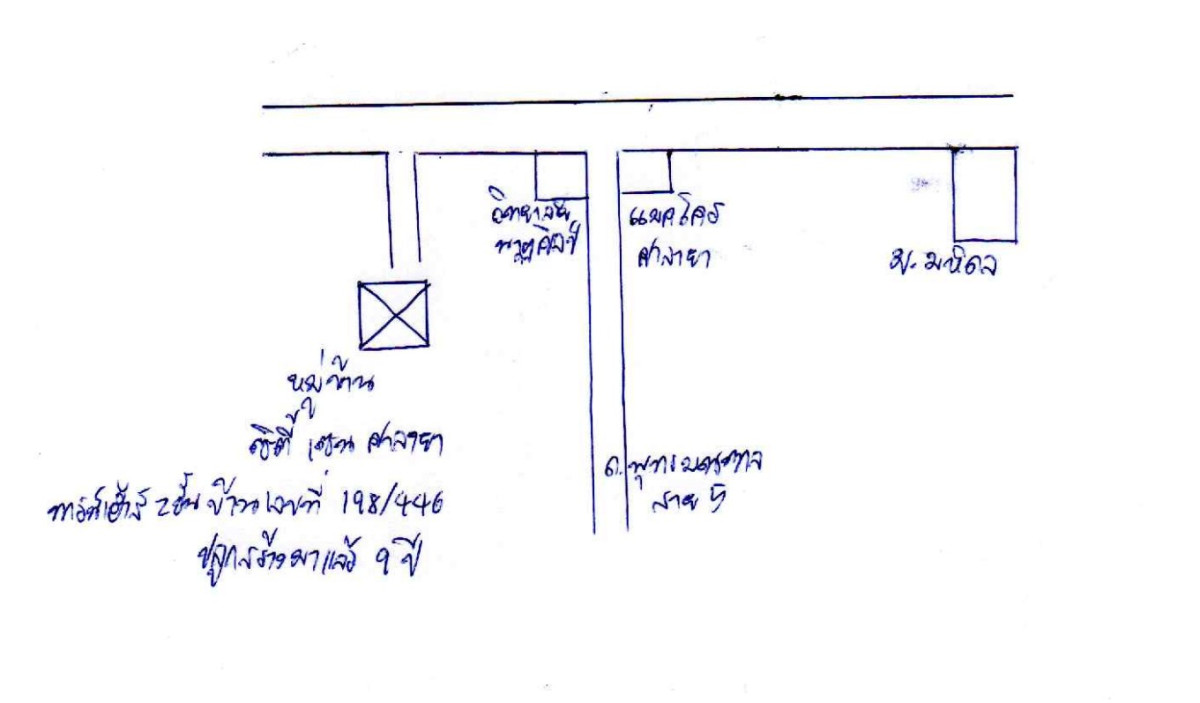 วิทยาลัย
นาฏศิลป์
แมคโคร
ศาลายา
ม.มหิดล
หมู่บ้าน
ซิตี้ เซน ศาลายา
ทาวน์เฮ้าส์ 2 ชั้น บ้านเลขที่ 198/446
ปลูกสร้างมาแล้ว 9 ปี
ถ.พุทธมณฑล
สาย 5